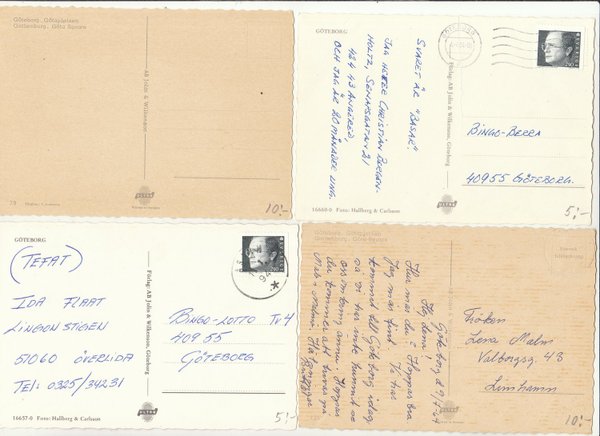 Göteborg. Götaplatsen
Gothenburg. Göta Square
AB Jolin & Wilkenson
79
10:-
GÖTEBORG
SVARET ÄR "BASAR".
JAG HETER CHRISTIAN BERGEN-
HOLTZ, SENAPSGATAN 21
424 43 ANGERED,
OCH JAG ÄR 20 MÅNADER UNG.
Förlag: AB Jolin & Wilkenson, Göteborg
BINGO-BERRA
409 55 GÖTEBORG.
16660-0 Foto: Hallberg & Carlsson
5:-
GÖTEBORG
(TEFAT)
IDA FLAAT
LINGONSTIGEN
51060 ÖVERLIDA
TEL: 0325/34231
Förlag: AB Jolin & Wilkenson, Göteborg
BINGO-LOTTO TV4
409 55
GÖTEBORG
16657-0 Foto: Hallberg & Carlsson
5:-
Göteborg. Götaplatsen
Gothenburg. Göta Square
Göteborg d 9/7-47
Hej
Hur mår du? Hoppas bra
Jag mår fint. Vi har
kommit till Göteborg idag,
så vi har inte hunnit se
oss omkring ännu. Hoppas
du kommer att trivas på
Fröken
Lena Malm
Valborgsg. 43
Limhamn
10:-